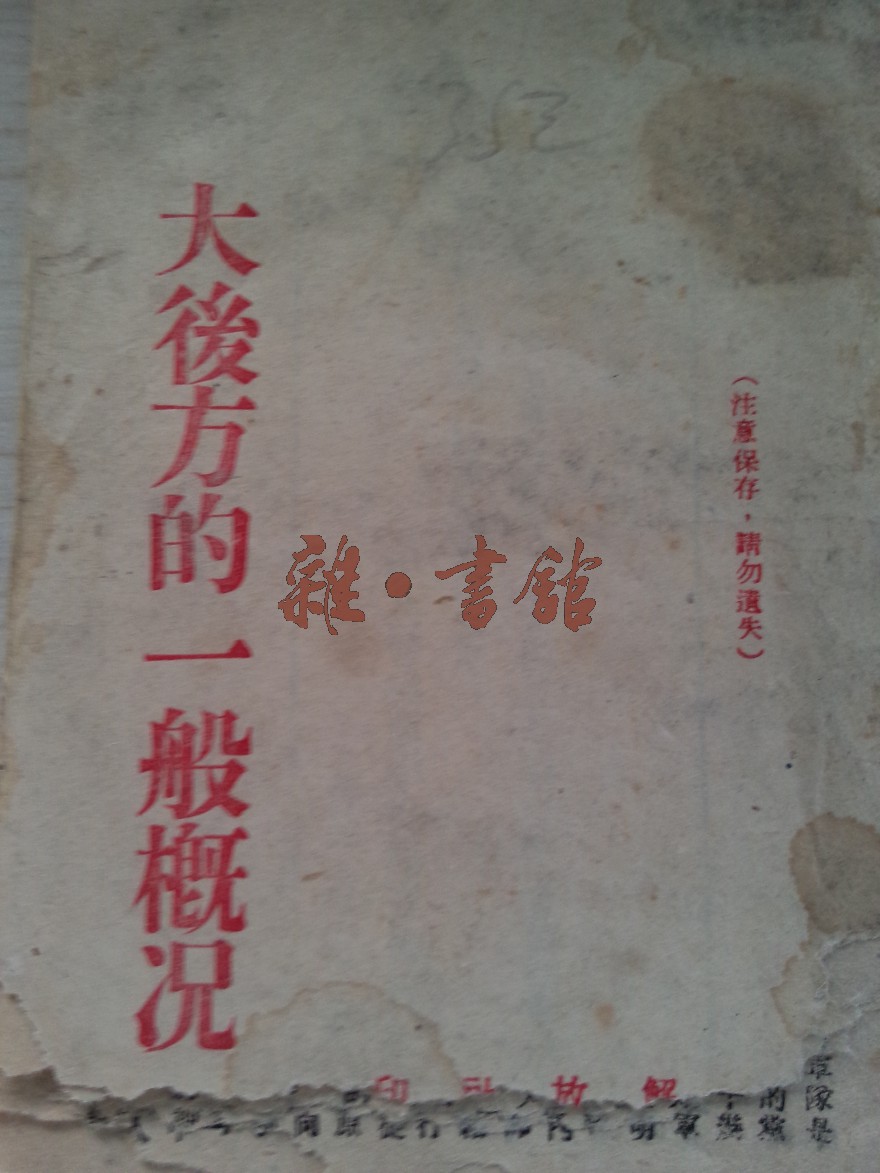 （注意保存，請勿遺失）
大後方的一般概况
雜·書館
解放社印